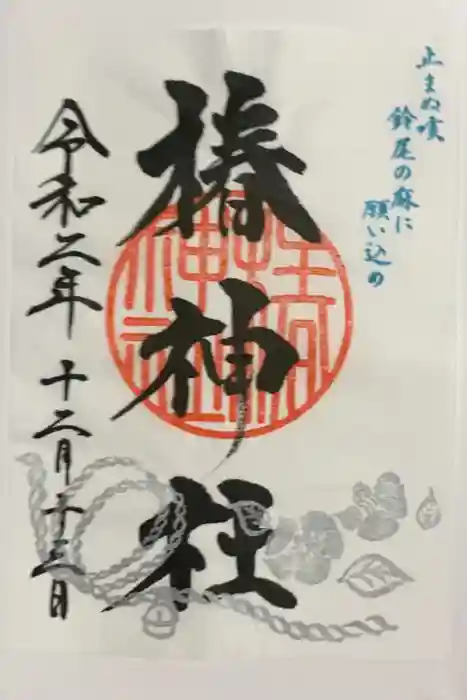 止まぬ咳
鈴尾の麻に
願い込め
椿神社
令和二年 十二月十三日
椿神社